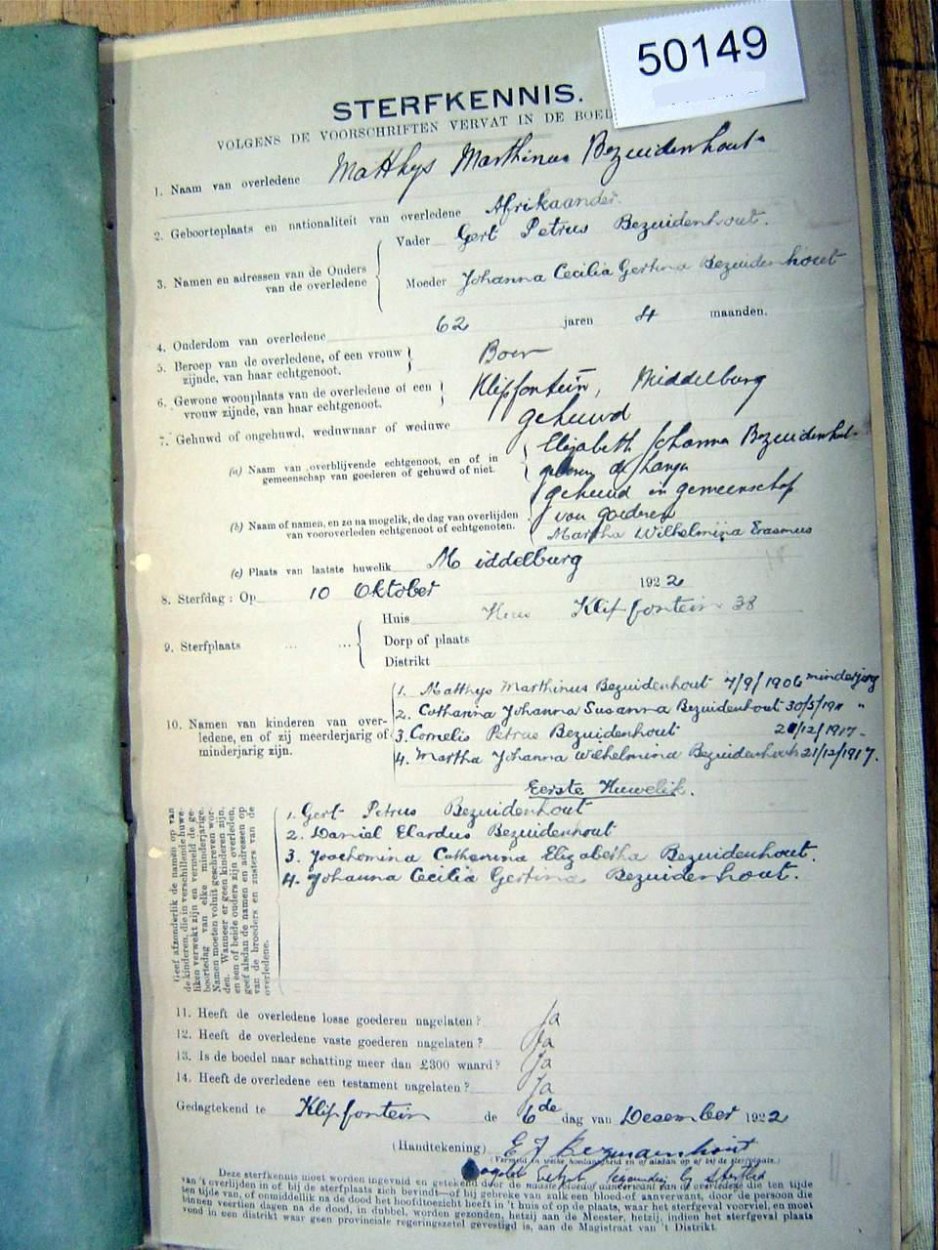 50149
STERFKENNIS.
VOLGENS DE VOORSCHRIFTEN VERVAT IN DE
1. Naam van overledene Matthys Marthinus Bezuidenhout
2. Geboorteplaats en nationaliteit van overledene Afrikaander.
3. Namen en adressen van de Ouders van de overledene
Vader Gert Petrus Bezuidenhout.
Moeder Johanna Cecilia Gertina Bezuidenhout
4. Onderdom van overledene 62 jaren 4 maanden.
5. Beroep van de overledene, of een vrouw
zijnde, van haar echtgenoot. Boer
6. Gewone woonplaats van de overledene of een
vrouw zijnde, van haar echtgenoot. Klipfontein, Middelburg
7. Gehuwd of ongehuwd, weduwnaar of weduwe gehuwd
(a) Naam van overblijvende echtgenoot, en of in
gemeenschap van goederen of gehuwd of niet.
Elizabeth Johanna Bezuidenhout
geboren de Lange
gehuwd in gemeenschap
van goederen
(b) Naam of namen, en zo na mogelik, de dag van overlijden
van vooroverleden echtgenoot of echtgenoten.
Martha Wilhelmina Erasmus
(c) Plaats van laatste huwelik Middelburg
8. Sterfdag: Op 10 Oktober 1922
9. Sterfplaats
Huis Huis Klipfontein 38
Dorp of plaats
Distrikt
10. Namen van kinderen van over-
ledene, en of zij meerderjarig of
minderjarig zijn.
1. Matthys Marthinus Bezuidenhout 7/9/1906 minderjarig
2. Catharina Johanna Susanna Bezuidenhout 30/5/1911 "
3. Cornelis Petrus Bezuidenhout 21/12/1917 -
4. Martha Johanna Wilhelmina Bezuidenhout 21/12/1917.
Eerste Huwelik.
1. Gert Petrus Bezuidenhout
2. Daniel Elardus Bezuidenhout
3. Joachemina Catharina Elizabetha Bezuidenhout.
4. Johanna Cecilia Gertina Bezuidenhout.
Geef afzonderlik de namen op van
de kinderen, die in verschillende huwe-
liken verwekt zijn en vermeld de ge-
boortedag van elke minderjarige.
Namen moeten voluit geschreven wor-
den. Wanneer er geen kinderen zijn,
en een of beide ouders zijn overleden,
geef alsdan de namen en adressen op
van de broeders en zusters van de
overledene.
11. Heeft de overledene losse goederen nagelaten? Ja
12. Heeft de overledene vaste goederen nagelaten? Ja
13. Is de boedel naar schatting meer dan £300 waard? Ja
14. Heeft de overledene een testament nagelaten? Ja
Gedagtekend te Klipfontein de 6de dag van Desember 1922
(Handtekening) E J Bezuidenhout
Deze sterfkennis moet worden ingevuld en getekend door de naaste bloed of aanverwant van de overledene die ten tijde
van 't overlijden in of bij de sterfplaats zich bevindt—of bij gebreke van zulk een bloed-of aanverwant, door de persoon die
ten tijde van, of onmiddellik na de dood het hoofdtoezicht heeft in 't huis of op de plaats, waar het sterfgeval voorviel, en moet
binnen veertien dagen na de dood, in dubbel, worden gezonden, hetzij aan de Meester, hetzij, indien het sterfgeval plaats
vond in een distrikt waar geen provinciale regeringszetel gevestigd is, aan de Magistraat van 't Distrikt.